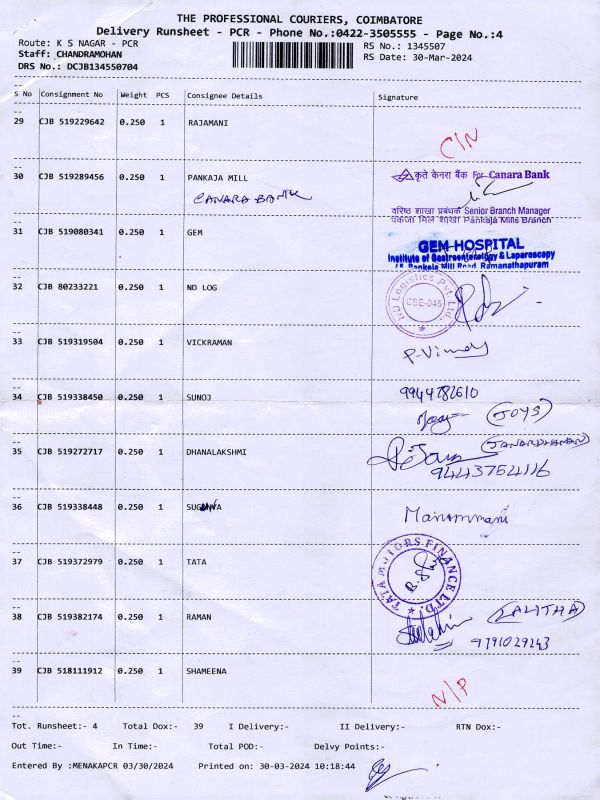 THE PROFESSIONAL COURIERS, COIMBATORE
Delivery Runsheet - PCR - Phone No.:0422-3505555 - Page No.:4
Route: K S NAGAR - PCR
Staff: CHANDRAMOHAN
DRS No.: DCJB134550704
RS No.: 1345507
RS Date: 30-Mar-2024
S No Consignment No Weight PCS Consignee Details Signature
29 CJB 519229642 0.250 1 RAJAMANI C/N
30 CJB 519289456 0.250 1 PANKAJA MILL
CANARA BANK
कृते केनरा बैंक For Canara Bank
वरिष्ठ शाखा प्रबंधक Senior Branch Manager
पंकजा मिल शाखा Pankaja Mills Branch
31 CJB 519080341 0.250 1 GEM
GEM HOSPITAL
Institute of Gastroenterology & Laparoscopy
Pankaja Mill Road, Ramanathapuram
32 CJB 80233221 0.250 1 ND LOG
ND Logistics Pvt. Ltd.
CBE-045
33 CJB 519319504 0.250 1 VICKRAMAN
34 CJB 519338450 0.250 1 SUNOJ
9944782610
(JOYS)
35 CJB 519272717 0.250 1 DHANALAKSHMI
(JANARDHANAN)
9443754116
36 CJB 519338448 0.250 1
37 CJB 519372979 0.250 1 TATA
TATA MOTORS FINANCE LTD.
38 CJB 519382174 0.250 1 RAMAN
(LALITHA)
9791029243
39 CJB 518111912 0.250 1 SHAMEENA N/P
Tot. Runsheet:- 4 Total Dox:- 39 I Delivery:- II Delivery:- RTN Dox:-
Out Time:- In Time:- Total POD:- Delvy Points:-
Entered By :MENAKAPCR 03/30/2024 Printed on: 30-03-2024 10:18:44